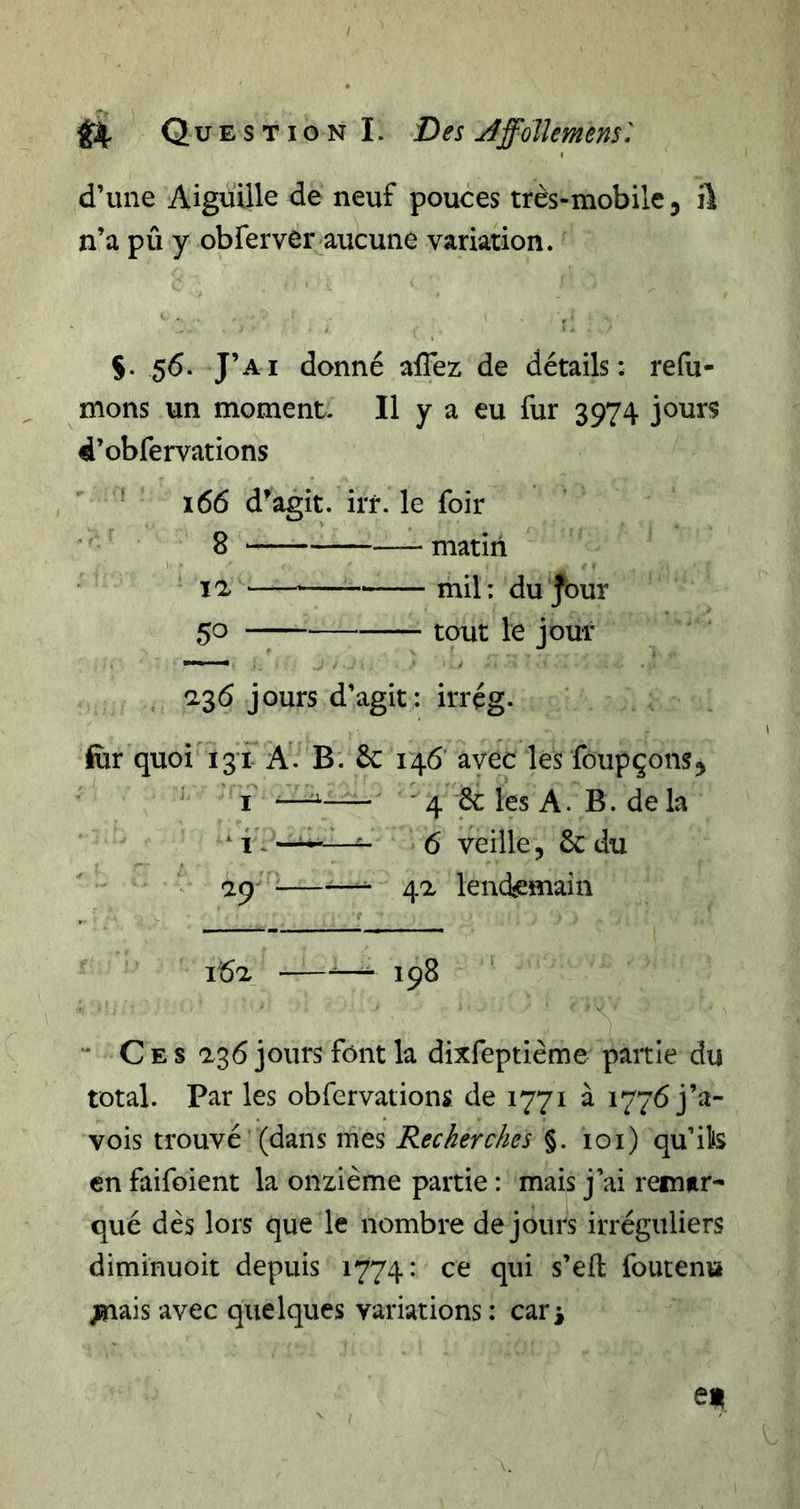 QUESTION I. Des Affollemens.
d'une Aiguille de neuf pouces très-mobile, il
n'a pû y obſerver aucune variation.
§. 56. J'AI donné aſſez de détails: reſu-
mons un moment. Il y a eu ſur 3974 jours
d'obſervations
166 d'agit. irr. le ſoir
8 ——— matin
12 ——— mil: du Jour
50 ——— tout le jour
236 jours d'agit: irrég.
ſur quoi 131 A. B. & 146 avec les ſoupçons,
1 ——— 4 & les A. B. de la
1 ——— 6 veille, & du
29 ——— 42 lendemain
162 ——— 198
CES 236 jours font la dixſeptième partie du
total. Par les obſervations de 1771 à 1776 j'a-
vois trouvé (dans mes Recherches §. 101) qu'ils
en faiſoient la onzième partie: mais j'ai remar-
qué dès lors que le nombre de jours irréguliers
diminuoit depuis 1774: ce qui s'eſt ſoutenu
mais avec quelques variations: car;
en